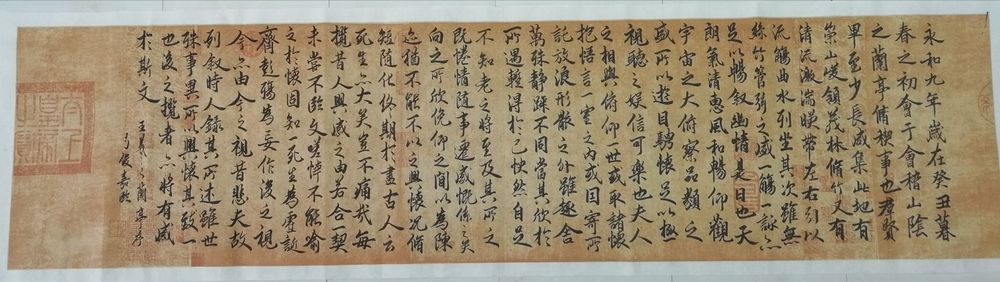 永和九年歲在癸丑暮
春之初會于會稽山陰
之蘭亭脩稧事也群賢
畢至少長咸集此地有
崇山峻領茂林脩竹又有
清流激湍暎帶左右引以
流觴曲水列坐其次雖無
絲竹管弦之盛一觴一詠亦
足以暢敘幽情是日也天
朗氣清惠風和暢仰觀
宇宙之大俯察品類之
盛所以遊目騁懷足以極
視聽之娛信可樂也夫人
之相與俯仰一世或取諸懷
抱悟言一室之內或因寄所
託放浪形骸之外雖趣舍
萬殊靜躁不同當其欣於
所遇輒得於己怏然自足
不知老之將至及其所之
既惓情隨事遷感慨係之矣
向之所欣俛仰之間以為陳
迹猶不能不以之興懷況脩
短隨化終期於盡古人云
死生亦大矣豈不痛哉每
攬昔人興感之由若合一契
未嘗不臨文嗟悼不能喻
之於懷固知一死生為虛誕
齊彭殤為妄作後之視
今亦由今之視昔悲夫故
列敘時人錄其所述雖世
殊事異所以興懷其致一
也後之攬者亦將有感
於斯文
王羲之蘭亭序